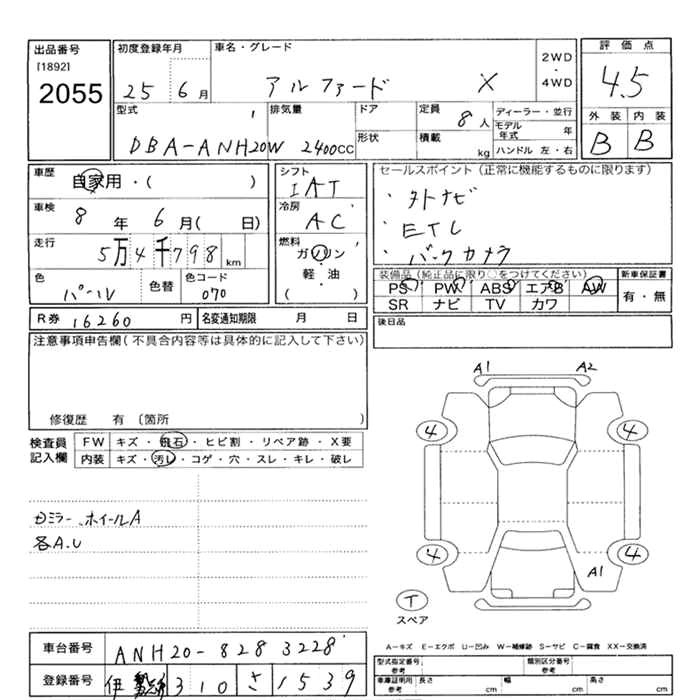 出品番号 初度登録年月 車名・グレード 2WD ・ 4WD 評価点
[1892]
2055 25 6月 アルファード X 4.5
型式 排気量 ドア 定員 8人 ディーラー・並行 外装 内装
モデル年式 年
DBA-ANH20W 2400cc 形状 積載 kg ハンドル 左・右 B B
車歴 自家用・( ) シフト IAT セールスポイント(正常に機能するものに限ります)
車検 8年 6月( 日) 冷房 AC ・外ナビ
・ETC
走行 5万4千798km 燃料 ガソリン ・バックカメラ
軽・油
( )
色 パール 色替 色コード 070 装備品(純正品に限り○をつけてください) 新車保証書
PS PW ABS エアB AW 有・無
SR ナビ TV カワ
R券 16260円 名変通知期限 月 日 後日品
注意事項申告欄(不具合内容等は具体的に記入して下さい)
修復歴 有〔箇所 〕
検査員記入欄 FW キズ・飛石・ヒビ割・リペア跡・X要
内装 キズ・汚レ・コゲ・穴・スレ・キレ・破レ
ミラー ホイールA
各A.U
A1 A2
4 4
4 4
A1
T
スペア
車台番号 ANH20-8283228
登録番号 伊勢志摩 310 さ 1539
A-キズ E-エクボ U-凹み W-補修跡 S-サビ C-腐食 XX-交換済
型式指定番号 参考 類別区分番号 参考
車庫証明用 参考 長さ cm 幅 cm 高さ cm